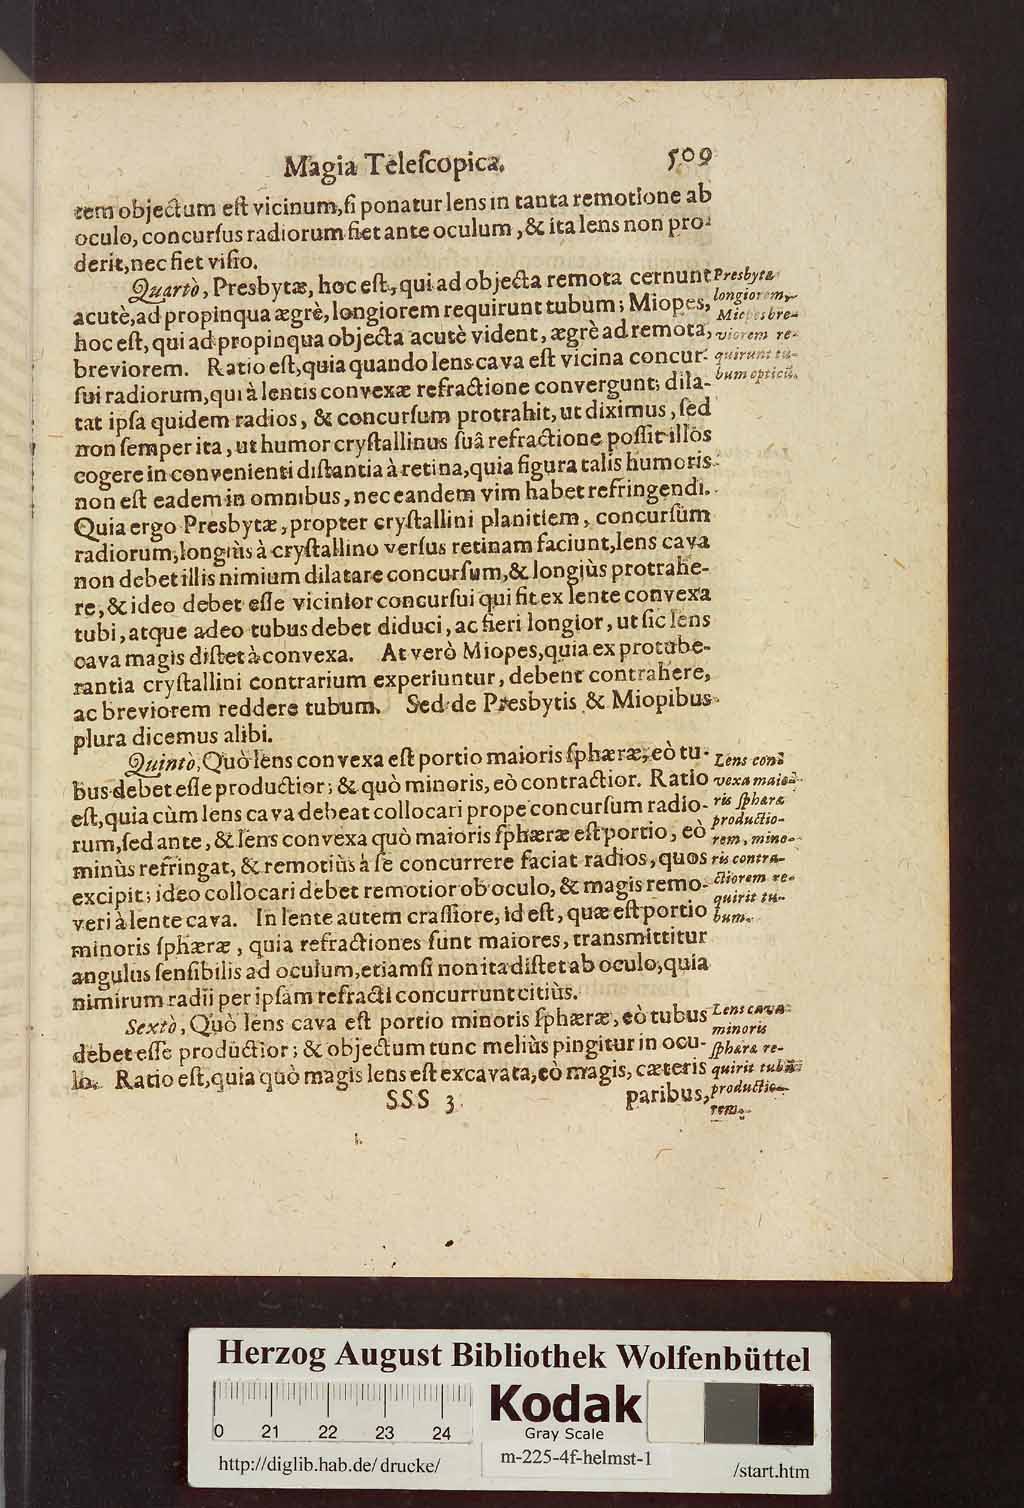 Magia Teleſcopica. 509
tem objectum eſt vicinum, ſi ponatur lens in tanta remotione ab
oculo, concurſus radiorum fiet ante oculum, & ita lens non pro-
derit, nec fiet viſio.
Quartò, Presbytæ, hoc eſt, qui ad objecta remota cernunt
acutè, ad propinqua ægrè, longiorem requirunt tubum; Miopes,
hoc eſt, qui ad propinqua objecta acutè vident, ægrè ad remota,
breviorem. Ratio eſt, quia quando lens cava eſt vicina concur-
ſui radiorum, qui à lentis convexæ refractione convergunt; dila-
tat ipſa quidem radios, & concurſum protrahit, ut diximus, ſed
non ſemper ita, ut humor cryſtallinus ſuâ refractione poſſit illos
cogere in convenienti diſtantia à retina, quia figura talis humoris
non eſt eadem in omnibus, nec eandem vim habet refringendi.
Quia ergo Presbytæ, propter cryſtallini planitiem, concurſum
radiorum, longiùs à cryſtallino verſus retinam faciunt, lens cava
non debet illis nimium dilatare concurſum, & longiùs protrahe-
re, & ideo debet eſſe vicinior concurſui qui fit ex lente convexa
tubi, atque adeo tubus debet diduci, ac fieri longior, ut ſic lens
cava magis diſtet à convexa. At verò Miopes, quia ex protube-
rantia cryſtallini contrarium experiuntur, debent contrahere,
ac breviorem reddere tubum. Sed de Presbytis & Miopibus
plura dicemus alibi.
Presbytæ
longiorem,
Miopes bre-
viorem re-
quirunt tu-
bum opticũ.
Quintò, Quò lens convexa eſt portio maioris ſphæræ, eò tu-
bus debet eſſe productior; & quò minoris, eò contractior. Ratio
eſt, quia cùm lens cava debeat collocari prope concurſum radio-
rum, ſed ante, & lens convexa quò maioris ſphæræ eſt portio, eò
minùs refringat, & remotiùs à ſe concurrere faciat radios, quos
excipit; ideo collocari debet remotior ob oculo, & magis remo-
veri à lente cava. In lente autem craſſiore, id eſt, quæ eſt portio
minoris ſphæræ, quia refractiones ſunt maiores, transmittitur
angulus ſenſibilis ad oculum, etiamſi non ita diſtet ab oculo, quia
nimirum radii per ipſam refracti concurrunt citiùs.
Lens con-
vexa maio-
ris ſphæræ
productio-
rem, mino-
ris contra-
ctiorem re-
quirit tu-
bum.
Sextò, Quò lens cava eſt portio minoris ſphæræ, eò tubus
debet eſſe productior; & objectum tunc meliùs pingitur in ocu-
lo. Ratio eſt, quia quò magis lens eſt excavata, eò magis, cæteris
Lens cava
minoris
ſphæræ re-
quirit tubũ
productio-
rem.
SSS 3 paribus,
Herzog August Bibliothek Wolfenbüttel
0 21 22 23 24
Kodak
Gray Scale
http://diglib.hab.de/drucke/ m-225-4f-helmst-1 /start.htm